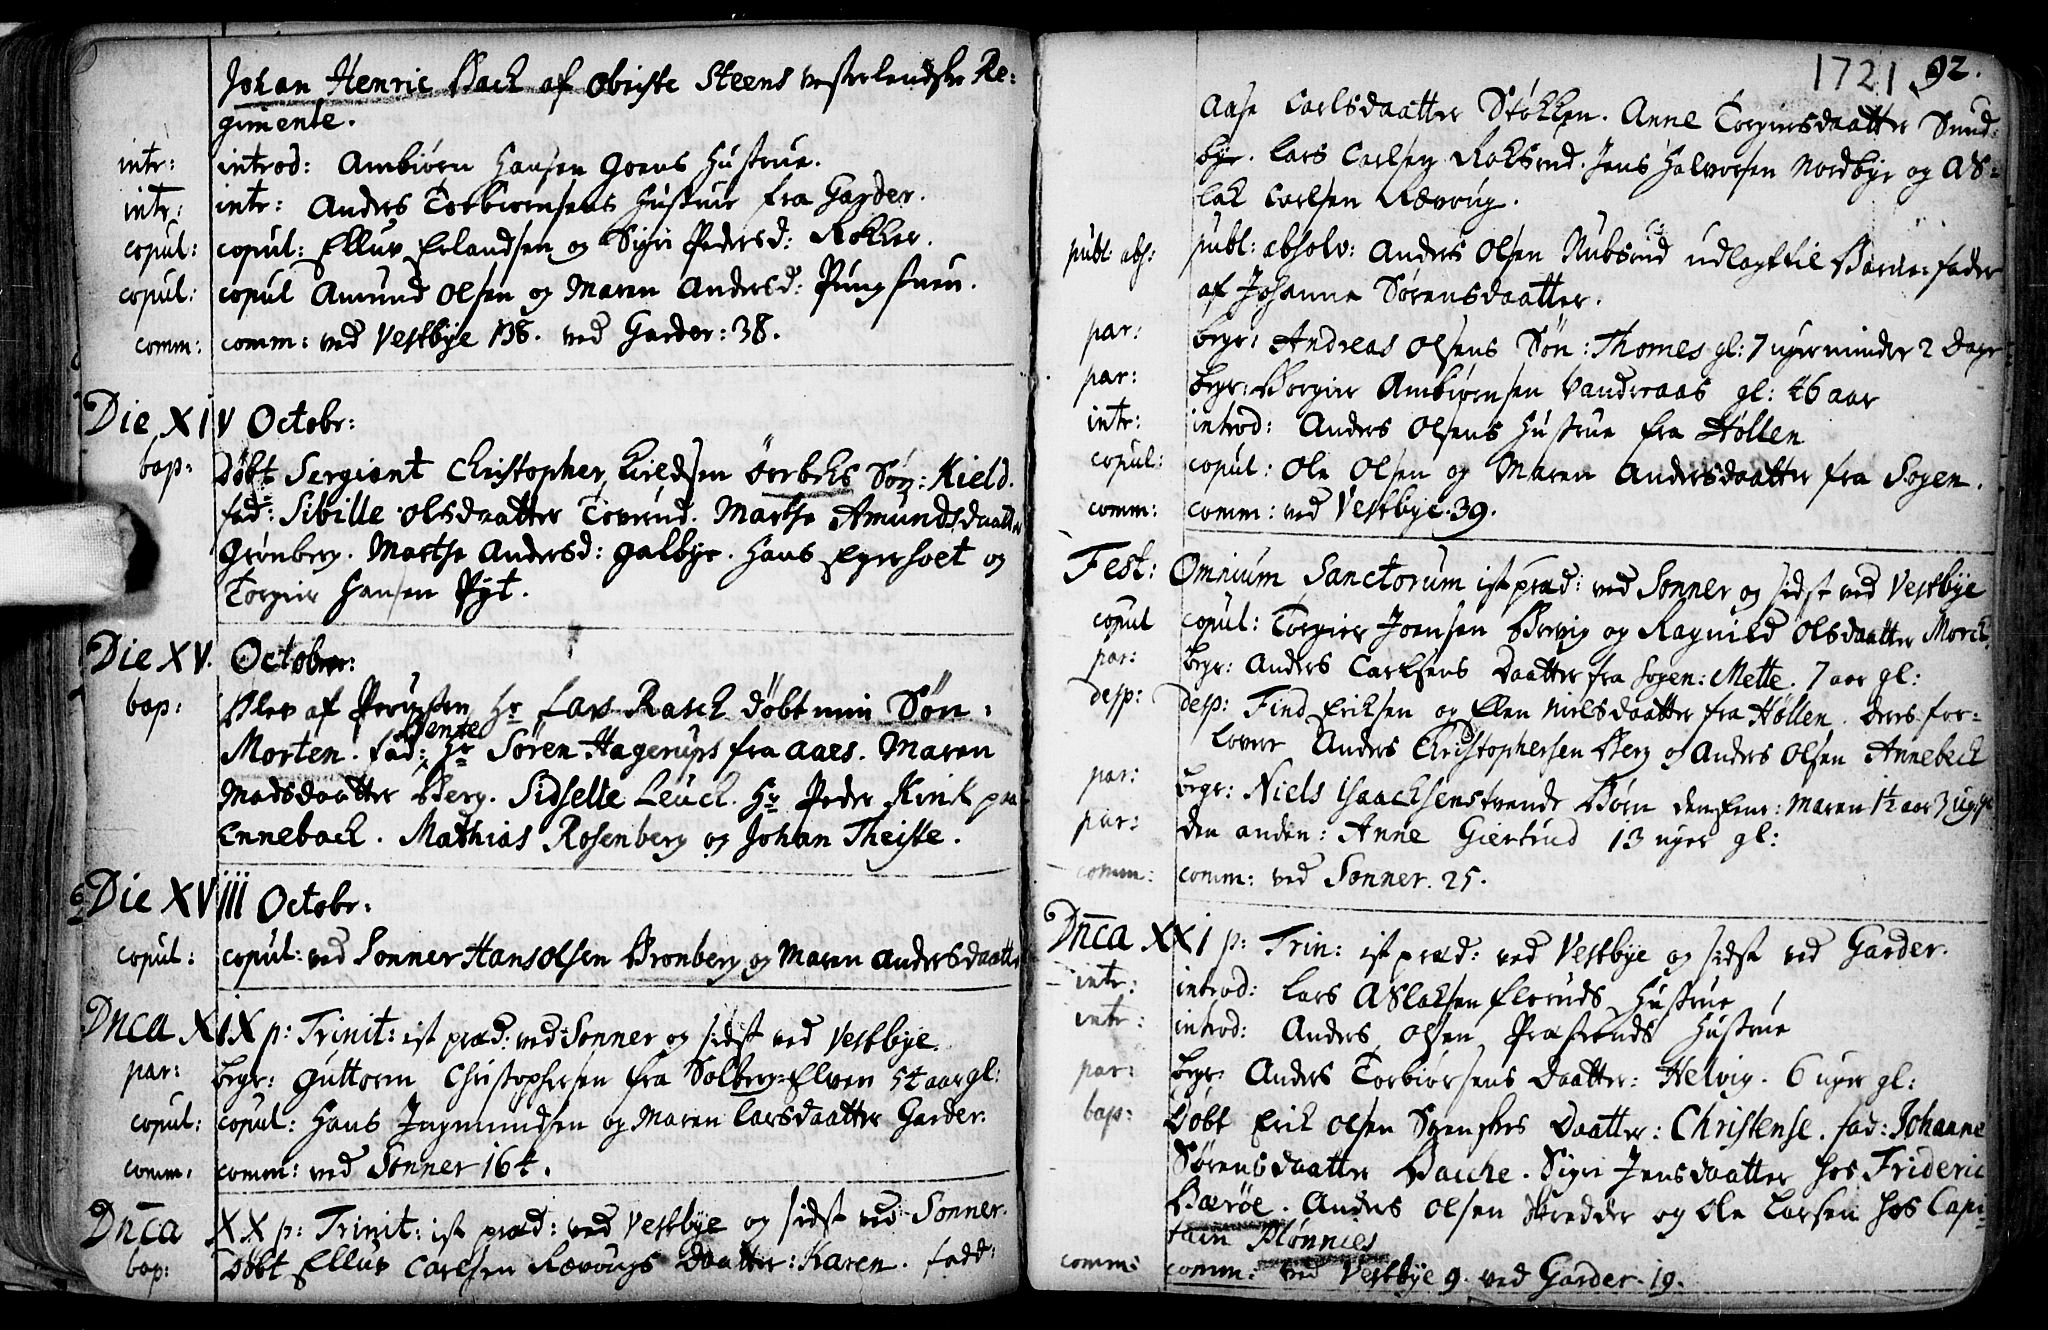 Johan Henric Back af Obriste Steens Vesterlendske Re=
gimente.
intr: introd: Ambiørn Hansen Goens Hustrue.
intr: intr: Anders Torbiørnsens Hustrue fra Garder.
copul: copul: Ellev Erlandsen og Sigri Pedersd: Rokker.
copul: copul Amund Olsen og Maren Andersd: Pungstuen.
comm: comm: ved Vestbye 138. ved Garder: 38.
Die XIV Octobr:
bap: Døbt Sergiant Christopher Kieldsen Örbeks Søn: Kield.
fad: Sibille Olsdaatter Toverud. Marthe Amundsdaatter
Grønberg. Marthe Andersd: Galbye. Hans Egershoet og
Torgier Hansen Pyt.
Die XV. October:
bap: Blev af Provsten Hr Lars Rasch döbt min Sön:
Morten. fad: Hr Sören Hagerups Hente fra Aaes. Maren
Madsdaatter Berg. Sidselle Leuch. Hr Peder Kink paa
Enneback. Mathias Rosenberg og Johan Theiste.
Die XVIII Octobr:
copul: copul: ved Sonner Hans Olsen Bronberg og Maren Andersdaatter
Dnca XIX p: Trinit: ist præd: ved Sonner og sidst ved Vestbye.
par: begr: Guttorm Christophersen fra Solberg=Elven 54 aar gl:
copul: copul: Hans Ingmundsen og Maren Larsdaatter Garder.
comm: comm: ved Sonner 164.
Dnca XX p: Trinit: ist præd: ved Vestbye og sidst ved Sonner.
bap: Döbt Ellev Carlsen Rævougs Daatter: Karen. fadd:
1721 92.
Aase Carlsdaatter Støkken. Anne Torgiersdaatter Sund=
bye. Lars Carlsen Roksrud. Jens Halvorsen Nordbye og As=
lak Carlsen Rævoug.
publ: abs: publ: absolv: Anders Olsen Nubsrud udlagt til Barne=fader
af Johanne Sørensdaatter.
par: begr: Andreas Olsens Søn: Thomes gl: 7 uger minder 2 Dage
par: begr: Borgier Ambiørnsen Vanderaas gl: 46 aar
intr: introd: Anders Olsens Hustrue fra Høllen
copul: copul: Ole Olsen og Maren Andersdaatter fra Sogen.
comm: comm: ved Vestbye. 39.
Fest: Omnium Sanctorum ist præd: ved Sonner og sidst ved Vestbye
copul copul: Torgier Joensen Bervig og Ragnild Olsdaatter Morck.
par: begr: Anders Carlsens Daatter fra Sogen: Mette. 7 aar gl:
desp: desp: Find Eriksen og Elen Nielsdaatter fra Høllen. Deres for=
lovere Anders Christophersen Berg og Anders Olsen Annebeck
par: begr: Niels Isaachsens tvende Børn den Eene: Maren 1½ aar 3 uger gl
par: den anden: Anne Giertrud 13 uger gl:
comm: comm: ved Sonner. 25.
Dnca XXI p: Trin: ist præd: ved Vestbye og sidst ved Garder.
intr: introd: Lars Aslaksen Floruds Hustrue
intr: introd: Anders Olsen Præsteruds Hustrue
par: begr: Anders Torbiørsens Daatter: Helvig. 6 uger gl:
bap: Döbt Erik Olsen Svenskes Daatter: Christense. fad: Johanne
Sørensdaatter Bacche. Sigri Jensdaatter hos Frideric
Bærøe. Anders Olsen Skredder og Ole Larsen hos Capi=
tain Plønnies
comm: comm: ved Vestbye 9. ved Garder. 19.